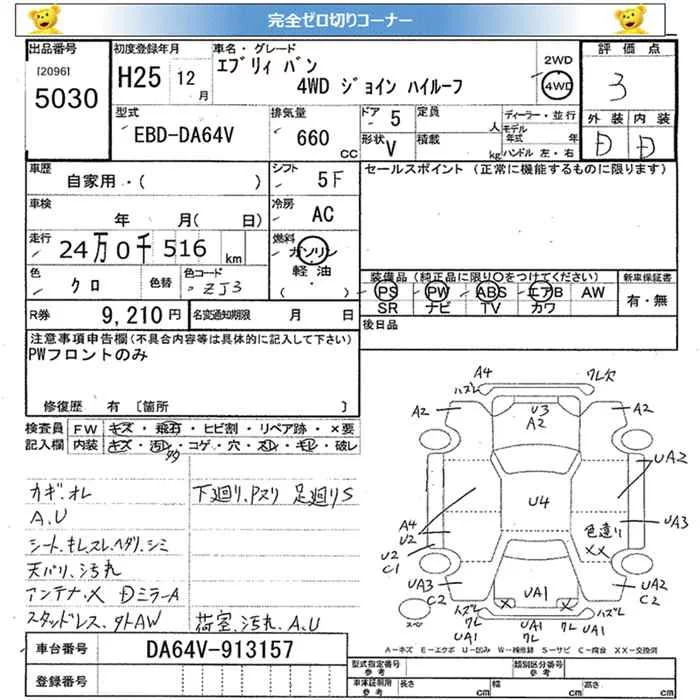 完全ゼロ切りコーナー
出品番号 初度登録年月 車名・グレード 評価点
[2096] 5030 H25 12月 エブリィ バン 4WD ジョイン ハイルーフ 2WD 4WD 3
型式 排気量 ドア 5 定員 人 ディーラー・並行 外装 内装
EBD-DA64V 660 CC 形状 V 積載 kg モデル年式 年 ハンドル 左・右 D D
車歴 シフト セールスポイント (正常に機能するものに限ります)
自家用・( ) 5F
車検 年 月( 日) 冷房 AC
走行 24万0千516km 燃料 ガソリン 軽油 ・ ( )
色 クロ 色替 色コード ZJ3
装備品 (純正品に限り○をつけてください) 新車保証書
PS PW ABS エアB AW 有・無
SR ナビ TV カワ
R券 9,210円 名変通知期限 月 日
後日品
注意事項申告欄(不具合内容等は具体的に記入して下さい)
PWフロントのみ
修復歴 有 〔箇所 〕
検査員 FW キズ・飛石・ヒビ割・リペア跡・×要
記入欄 内装 キズ・汚レ・コゲ・穴・スレ・キレ・破レ
カギ.オレ 下廻り.Pスリ 足廻りS
A.U
シート.キレ.スレ.ヘタリ.シミ
天バリ.汚れ
アンテナ.× Dミラー.A
スタッドレス.外AW 荷室.汚れ.A.U
A4 ハズレ ワレ欠
A2 U3 A2 A2
UA2
U4
A4 U2 UA3
色違り ××
U2 C1
UA3 C2 UA1 UA2 C2
× ×
スペア ハズレ ワレ UA1 UA1 ワレ ワレ ハズレ UA1
A-キズ E-エクボ U-凹み W-補修跡 S-サビ C-腐食 XX-交換済
車台番号 DA64V-913157
登録番号
型式指定番号 参考 類別区分番号 参考
車体証制用 参考 長さ cm 幅 cm 高さ cm